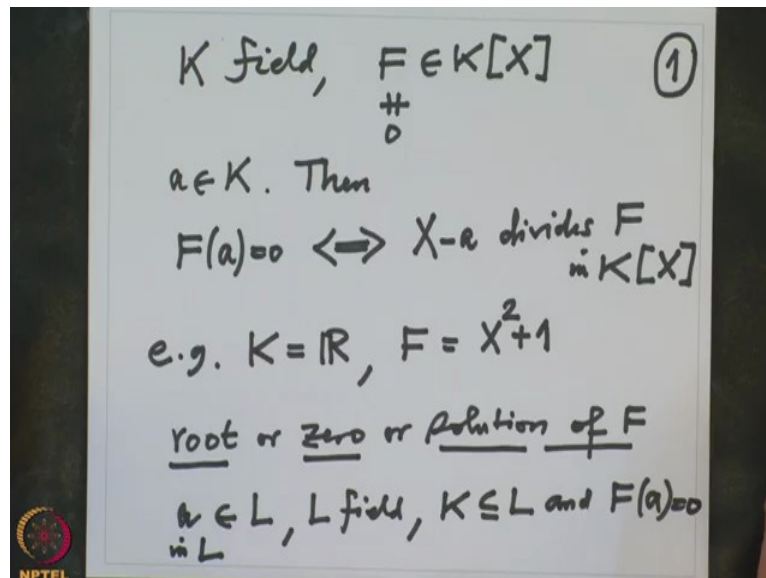 K field, F ∈ K[X] ①
≠
0
a ∈ K. Then
F(a)=0 ⟺ X-a divides F
in K[X]
e.g. K = ℝ, F = X²+1
root or zero or solution of F
a ∈ L, L field, K ⊆ L and F(a)=0
in L
NPTEL